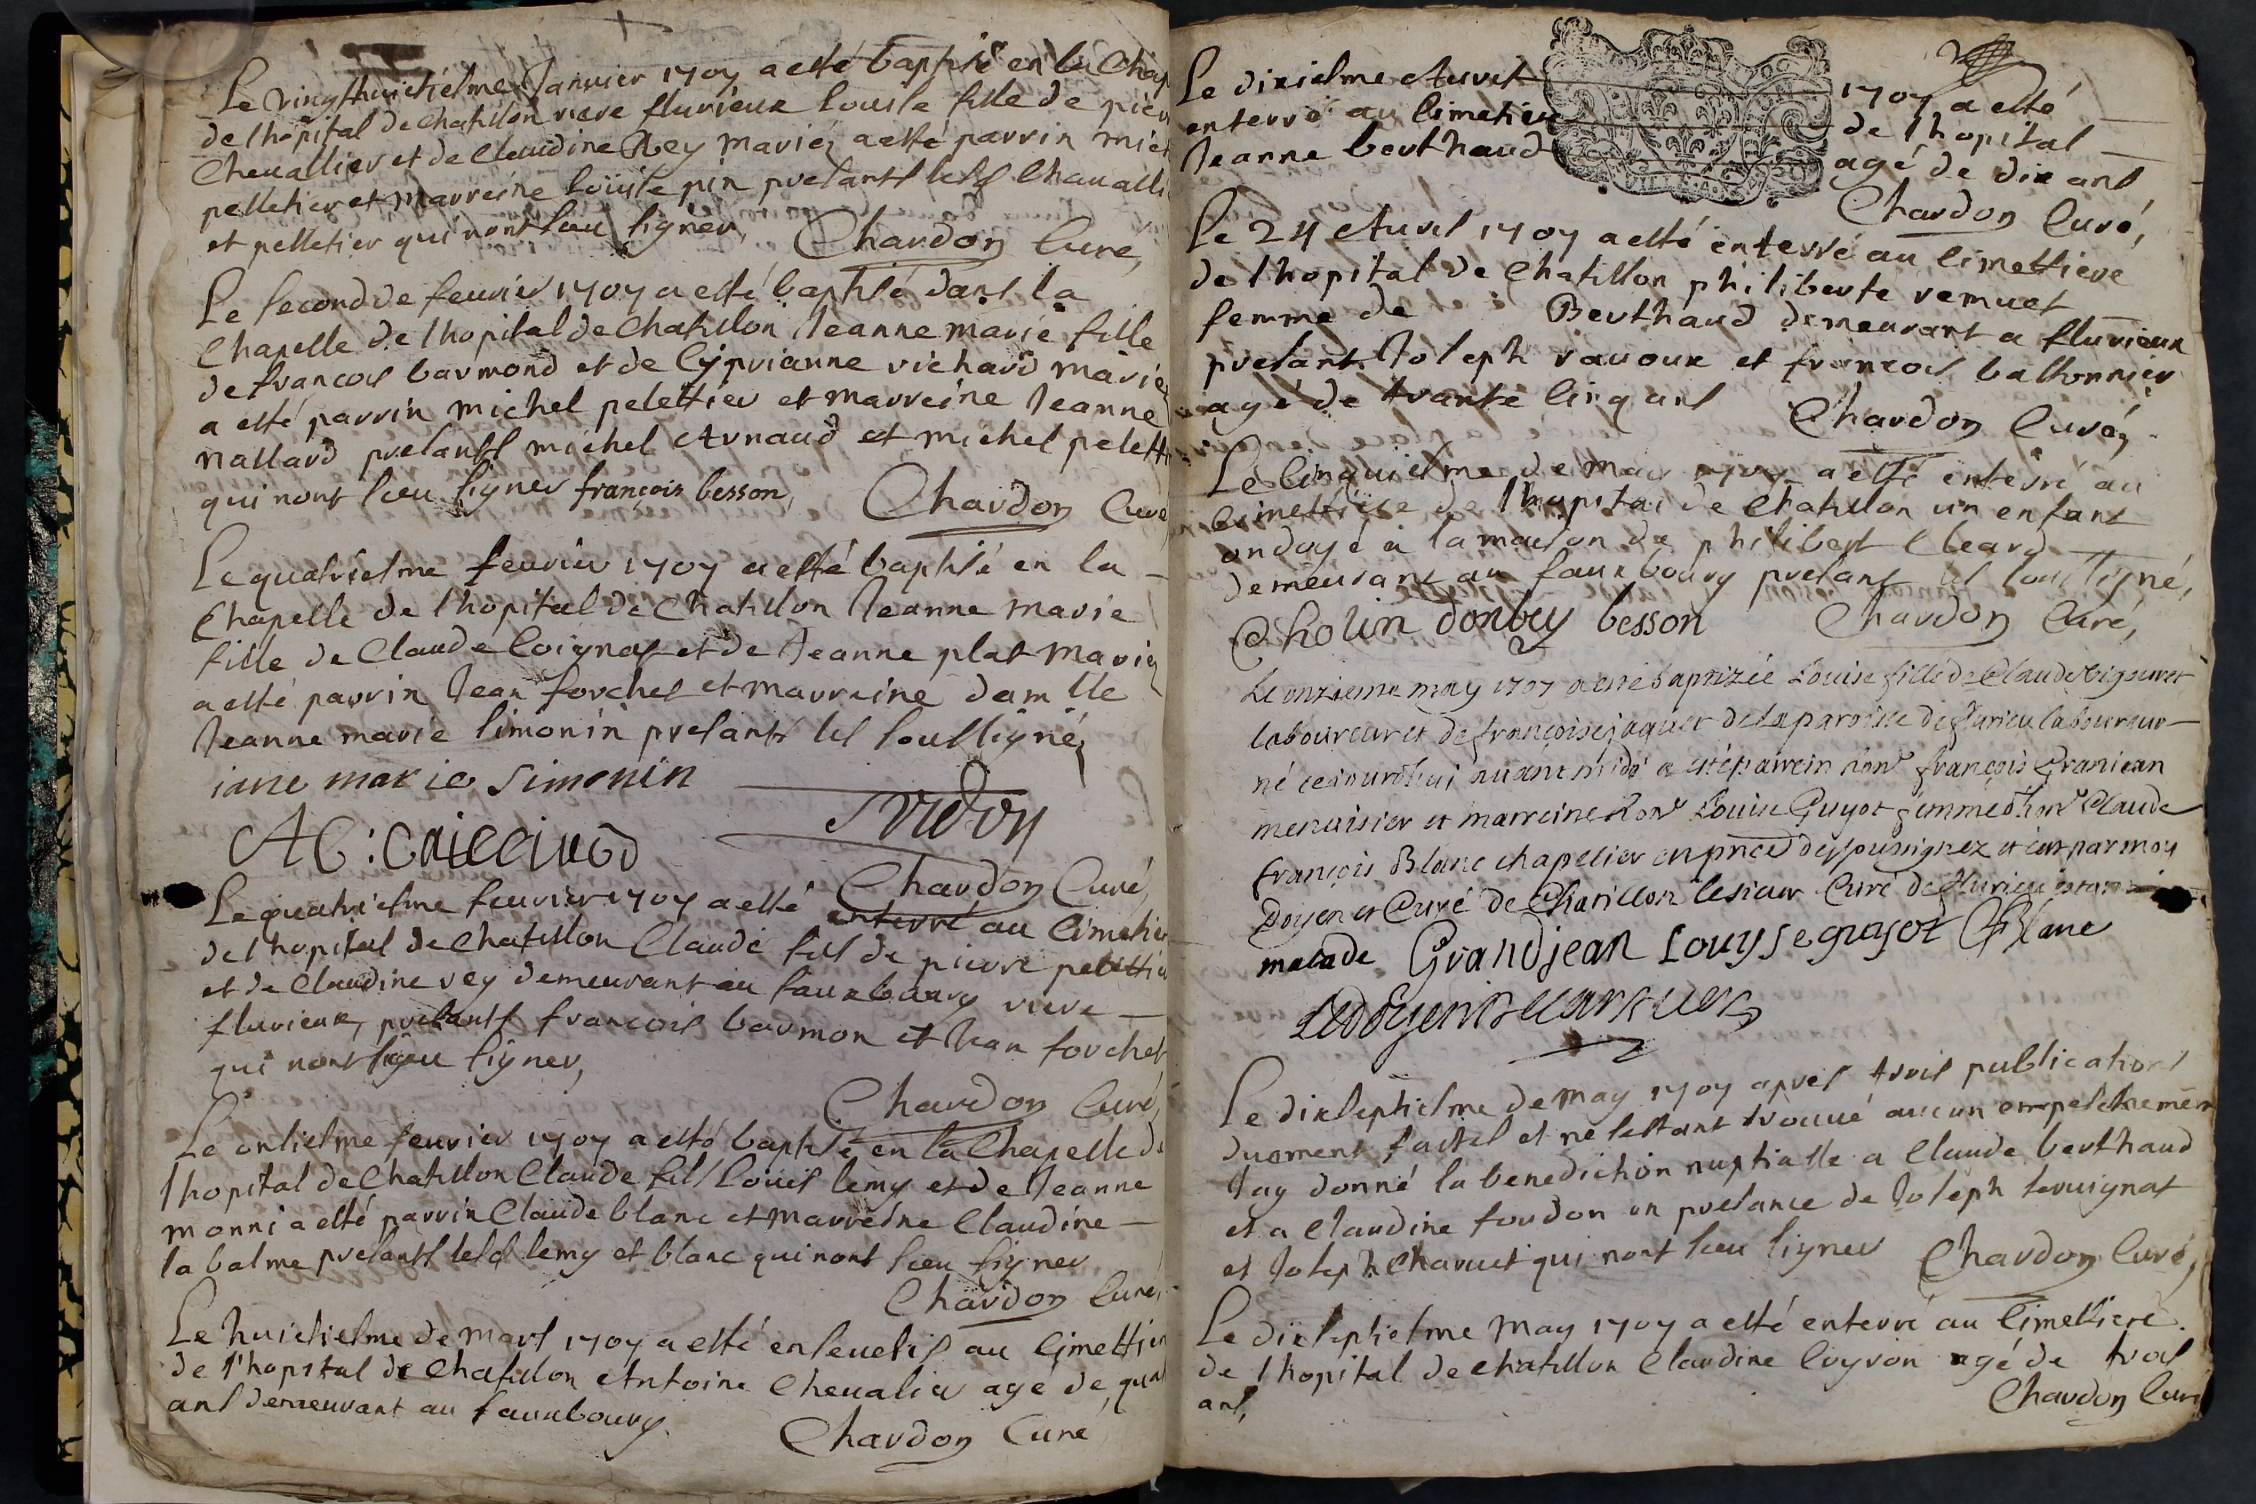 Le vingthuictiesme Janvier 1707 a esté baptisé en la Chap
de lhopital de chatillon riere fluvieux Louise fille de pier
Chevallier et de Claudine Rey mariéz a esté parrin mich
pelletier et marreine Louise pin presants lesd Chavalli
et pelletier qui nont sceu signer, Chardon Curé,
Le second de feuvrier 1707 a esté baptisé dans la
Chapelle de lhopital de Chatillon Jeanne marie fille
de francois barmond et de Cyprianne richard mariez
a esté parrin michel pelettier et marreine Jeanne
nallard presants michel Arnaud et michel peletti
qui nont sceu signer françois besson, Chardon Curé
Le quatriesme feuvrier 1707 a esté baptisé en la
Chapelle de lhopital de Chatillon Jeanne marie
fille de Claude Coignas et de Jeanne plat mariez
a esté parrin Jean forches et marreine damlle
Jeanne marie simonin presants les soussignéz
iane marie simonin
Chardon Curé,
Le quatriesme feuvrier 1707 a esté enterré au Cimetier
de lhopital de Chatillon Claude fils de pierre pelettier
et de Claudine rey demeurant au fauxbourg riere
fluvieux, presants francois barmon et Jean forches
qui nont sceu signer,
Chardon Curé,
Le onsiesme feuvrier 1707 a esté baptisé en la Chapelle de
lhopital de Chatillon Claude fils Louis lemy et de Jeanne
monni a esté parrin Claude blanc et marreine Claudine
la balme presants lesd lemy et blanc qui nont sceu signer
Chardon Curé,
Le huictiesme de mars 1707 a esté ensevelis au Cimettier
de l'hopital de Chatillon Antoine Chevalier agé de quat
ans demeurant au fauxbourg.
Chardon Curé
Le dixiesme Avril 1707 a esté
enterré au Cimetiere de lhopital
Jeanne berthaud agé de dix ans
Chardon Curé,
Le 24 Avril 1707 a esté enterré au Cimettiere
de lhopital de Chatillon philiberte remuet
femme de Berthaud demeurant a fluvieux
presant Joseph ravoux et francois bastonnier
agé de trante cinq ans Chardon Curé,
Le Cinquiesme de may 1707 a esté enterré au
Cimettiere de lhopital de Chatillon un enfant
ondoyé a la maison de philibert Cleard
demeurant au fauxbourg presant les soussigné,
Cholin donbey besson Chardon Curé,
Le onzieme may 1707 a esté baptizée Louise fille de Claude Vigouret
laboureur et de françoise jaquet de la paroisse de flurieu laboureur
né cejourdhui avant midi a esté parrein honr françois Granjean
menuisier et marreine honr Louise Guyot femme d'honr Claude
françois Blanc chapelier en pnce des soussignez et ce par moy
Doyen et Curé de Chatillon lesieur Curé de flurieu estant
malade Grandjean Louyse guyot Blanc
Le dixseptiesme de may 1707 apres trois publications
duement faites et ne sestant trouvé aucun empeschement
Jay donné la benediction nuptialle a Claude berthaud
et a Claudine foudon en presance de Joseph servignat
et Joseph Charuet qui nont sceu signer Chardon Curé,
Le dixseptiesme may 1707 a esté enterré au Cimettiere
de lhopital de chatillon Claudine Cuyron agé de trois
ans, Chardon Curé